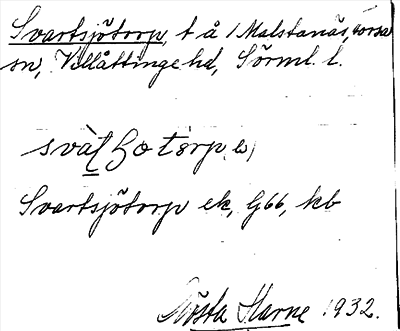 Svartsjötorp, t å 1 Malstanäs, Torsåker
sn, Villåttinge hd, Sörml. l.
svàʈʂo tɔrp, b)
Svartsjötorp ek, G66, kb
Gösta Harne 1932.